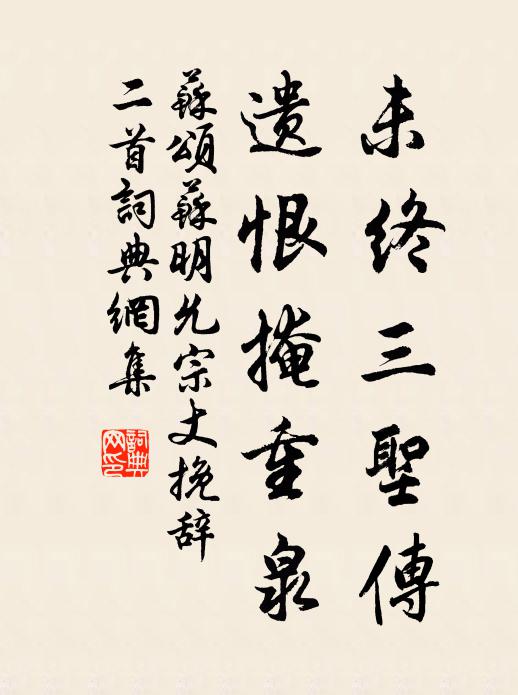 未终三聖傳
遗恨掩重泉
蘇頌蘇明允宗丈挽辞
二首詞典網集
詞典
网印